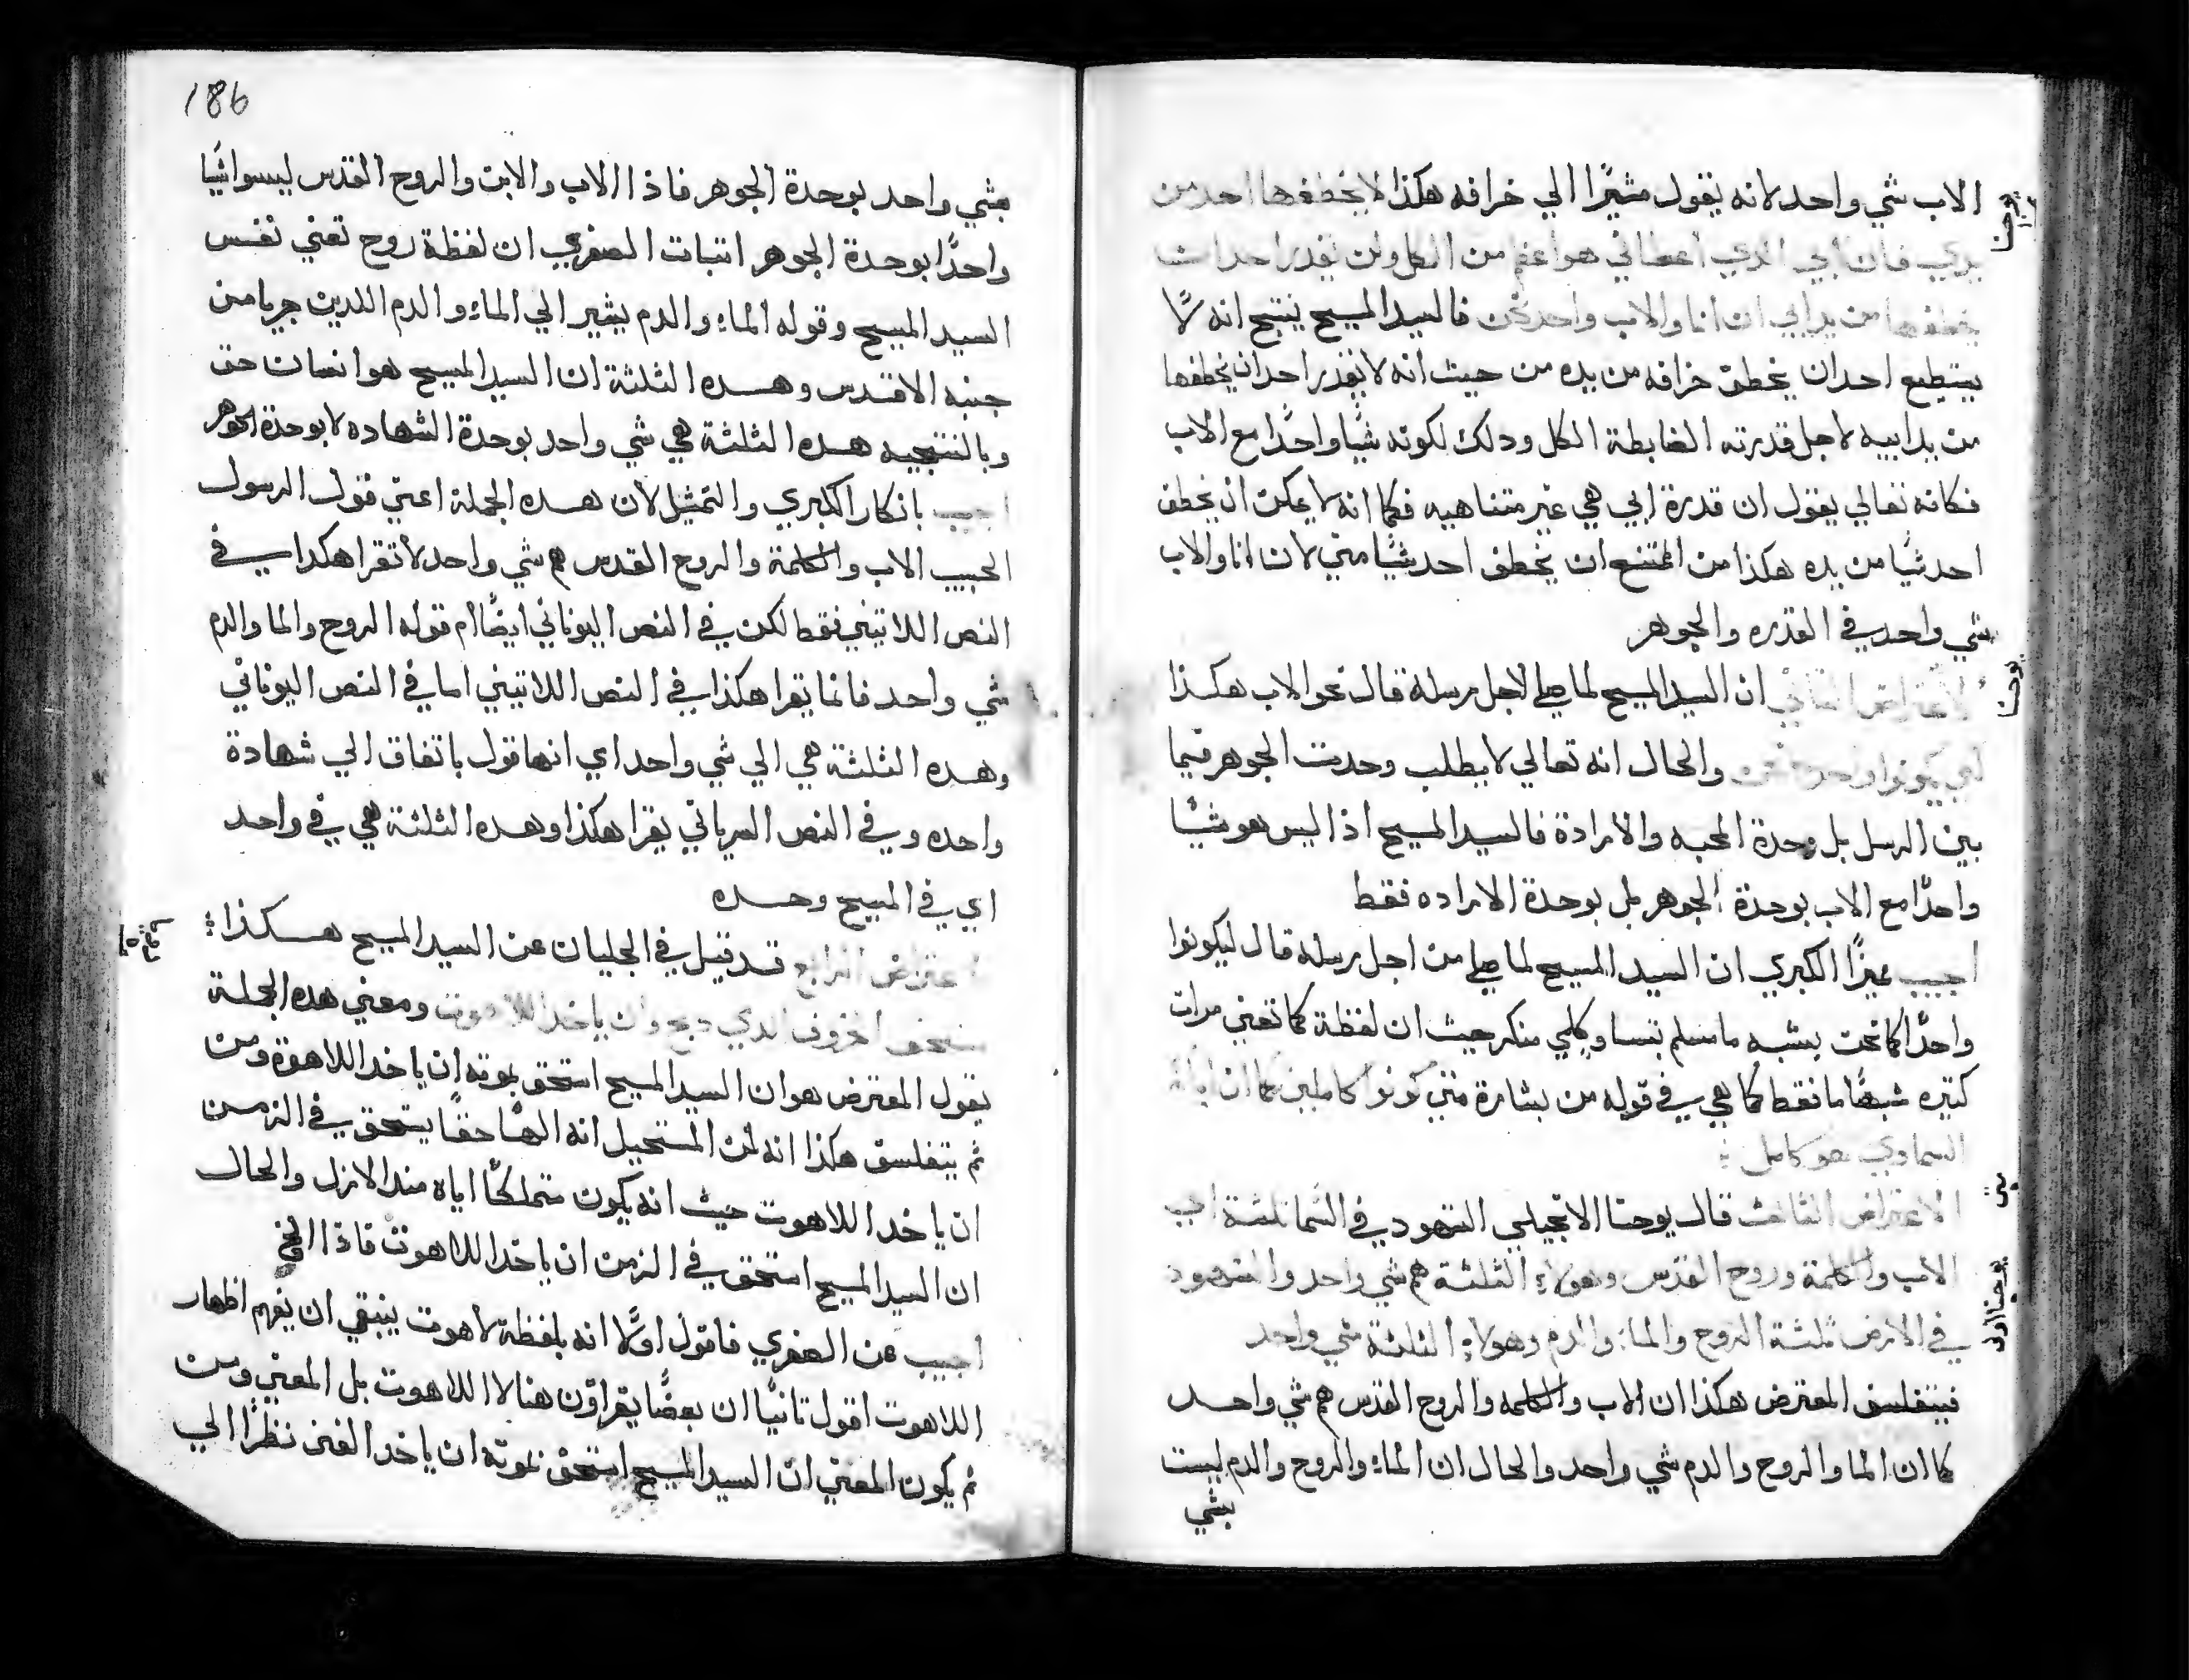 الاب شي واحد لانه يقول مشيرًا الي خرافه هكذا لا يخطفها احد من
يدي فان ابي الدي اعطاني هو اعظم من الكل ولن يقدر احد ان
يخطفها من يد ابي ان انا والاب واحد نحن فالسيد المسيح ينتج انه لا
يستطيع احد ان يخطف خرافه من يده من حيث انه لا يقدر احد ان يخطفها
من يد ابيه لاجل قدرته الضابطة الكل ودلك لكونه شيًا واحدًا مع الاب
فكانه تعالي يقول ان قدرة ابي هي غير متناهيه فكما انه لا يمكن ان يخطف
احد شيًا من يده هكذا من الممتنع ان يخطف احد شيًا مني لان انا والاب
شي واحد في القدره والجوهر
الاعتراض الثاني ان السيد المسيح لما صلي لاجل رسله قال نحو الاب هكذا
لكي يكونوا واحد كنحن والحال انه تعالي لا يطلب وحدت الجوهر فيما
بين الرسل بل وحدة المحبه والارادة فالسيد المسيح اذا ليس هو شيًا
واحدًا مع الاب بوحدة الجوهر بل بوحدة الاراده فقط
اجيب مميزًا الكبري ان السيد المسيح لما صلي من اجل رسله قال ليكونوا
واحدًا كما نحن بشبه ما مسلم بتساوٍ كلي منكر حيث ان لفظة كما تعني مرات
كتيره شبهًا ما فقط كما هي في قوله من بشارة متي كونوا كاملين كما ان اباكم
السماوي هو كامل
الاعتراض الثالث قال يوحنا الانجيلي الشهود في السما ثلثة اي
الاب والكلمة وروح القدس وهولاء الثلثة هم شي واحد والشهود
في الارض ثلثة الروح والماء والدم وهولاء الثلثة شي واحد
فيتفلسف المعترض هكذا ان الاب والكلمه والروح القدس هم شي واحد
كما ان الما والروح والدم شي واحد والحال ان الماء والروح والدم ليست
بشي
يوحنا
يوحنا
متي
يوحنا اول
186
بشي واحد بوحدة الجوهر فاذا الاب والابن والروح القدس ليسوا شيًا
واحدًا بوحدة الجوهر اتبات الصغري ان لفظة روح تعني نفس
السيد المسيح وقوله الماء والدم يشير الي الماء والدم اللدين جريا من
جنبه الاقدس وهده الثلثة ان السيد المسيح هو انسان حق
وبالنتيجيه هده الثلثة هي شي واحد بوحدة الشهاده لا بوحدة الجوهر
اجيب بانكار الكبري والتمثيل لان هده الجملة اعني قول الرسول
الحبيب الاب والكلمة والروح القدس هم شي واحد لا تقرا هكدا في
النص اللاتيني فقط لكن في النص اليوناني ايضًا ام قوله الروح والما والدم
شي واحد فانما يقرا هكذا في النص اللاتيني اما في النص اليوناني
وهده الثلثة هي الي شي واحد اي انها قول باتفاق الي شهادة
واحده وفي النص السرياني يقرا هكذا وهده الثلثة هي في واحد
اي في المسيح وحده
الاعتراض الرابع قد قيل في الجليان عن السيد المسيح هكذا
مستحق الخروف الدي دبح وان ياخد اللاهوت ومعني هده الجملة
يقول المعترض هو ان السيد المسيح استحق بموته ان ياخد اللاهوة ومن
ثم يتفلسف هكذا انه لمن المستحيل انه الهًا حقًا يستحق في الزمن
ان ياخد اللاهوت حيث انه يكون متملكًا اياه مند الازل والحال
ان السيد المسيح استحق في الزمن ان ياخد اللاهوت فاذا الخ
اجيب عن الصغري فاقول اولًا انه بلفظة لاهوت ينبغي ان يفهم اظهار
اللاهوت اقول تانيًا ان بعضًا يقراون هنا لا اللاهوت بل المغني ومن
ثم يكون المعني ان السيد المسيح استحق بموته ان ياخد الغني نظرًا الي